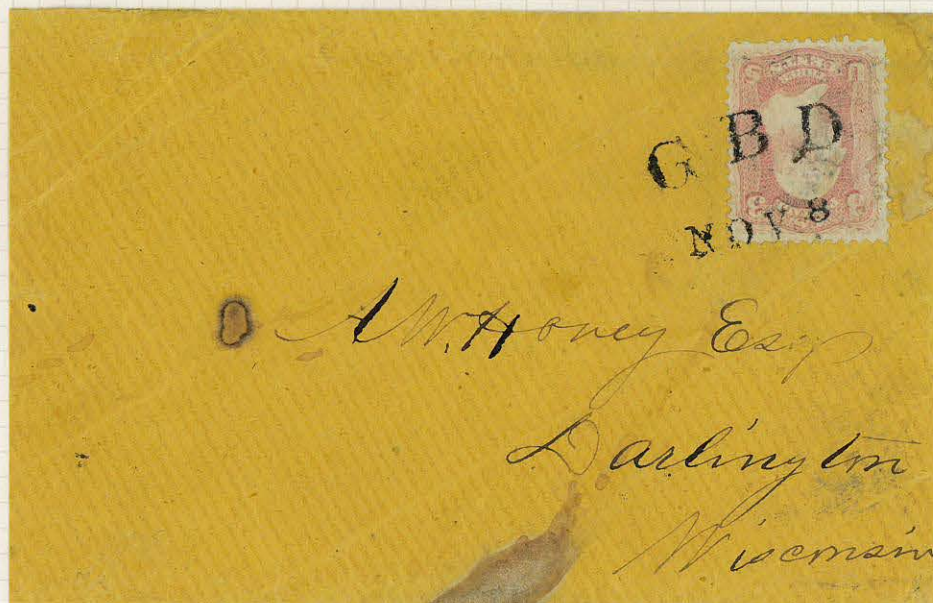 G B D
NOV 8
A W. Hovey Esq
Darlington
Wisconsin